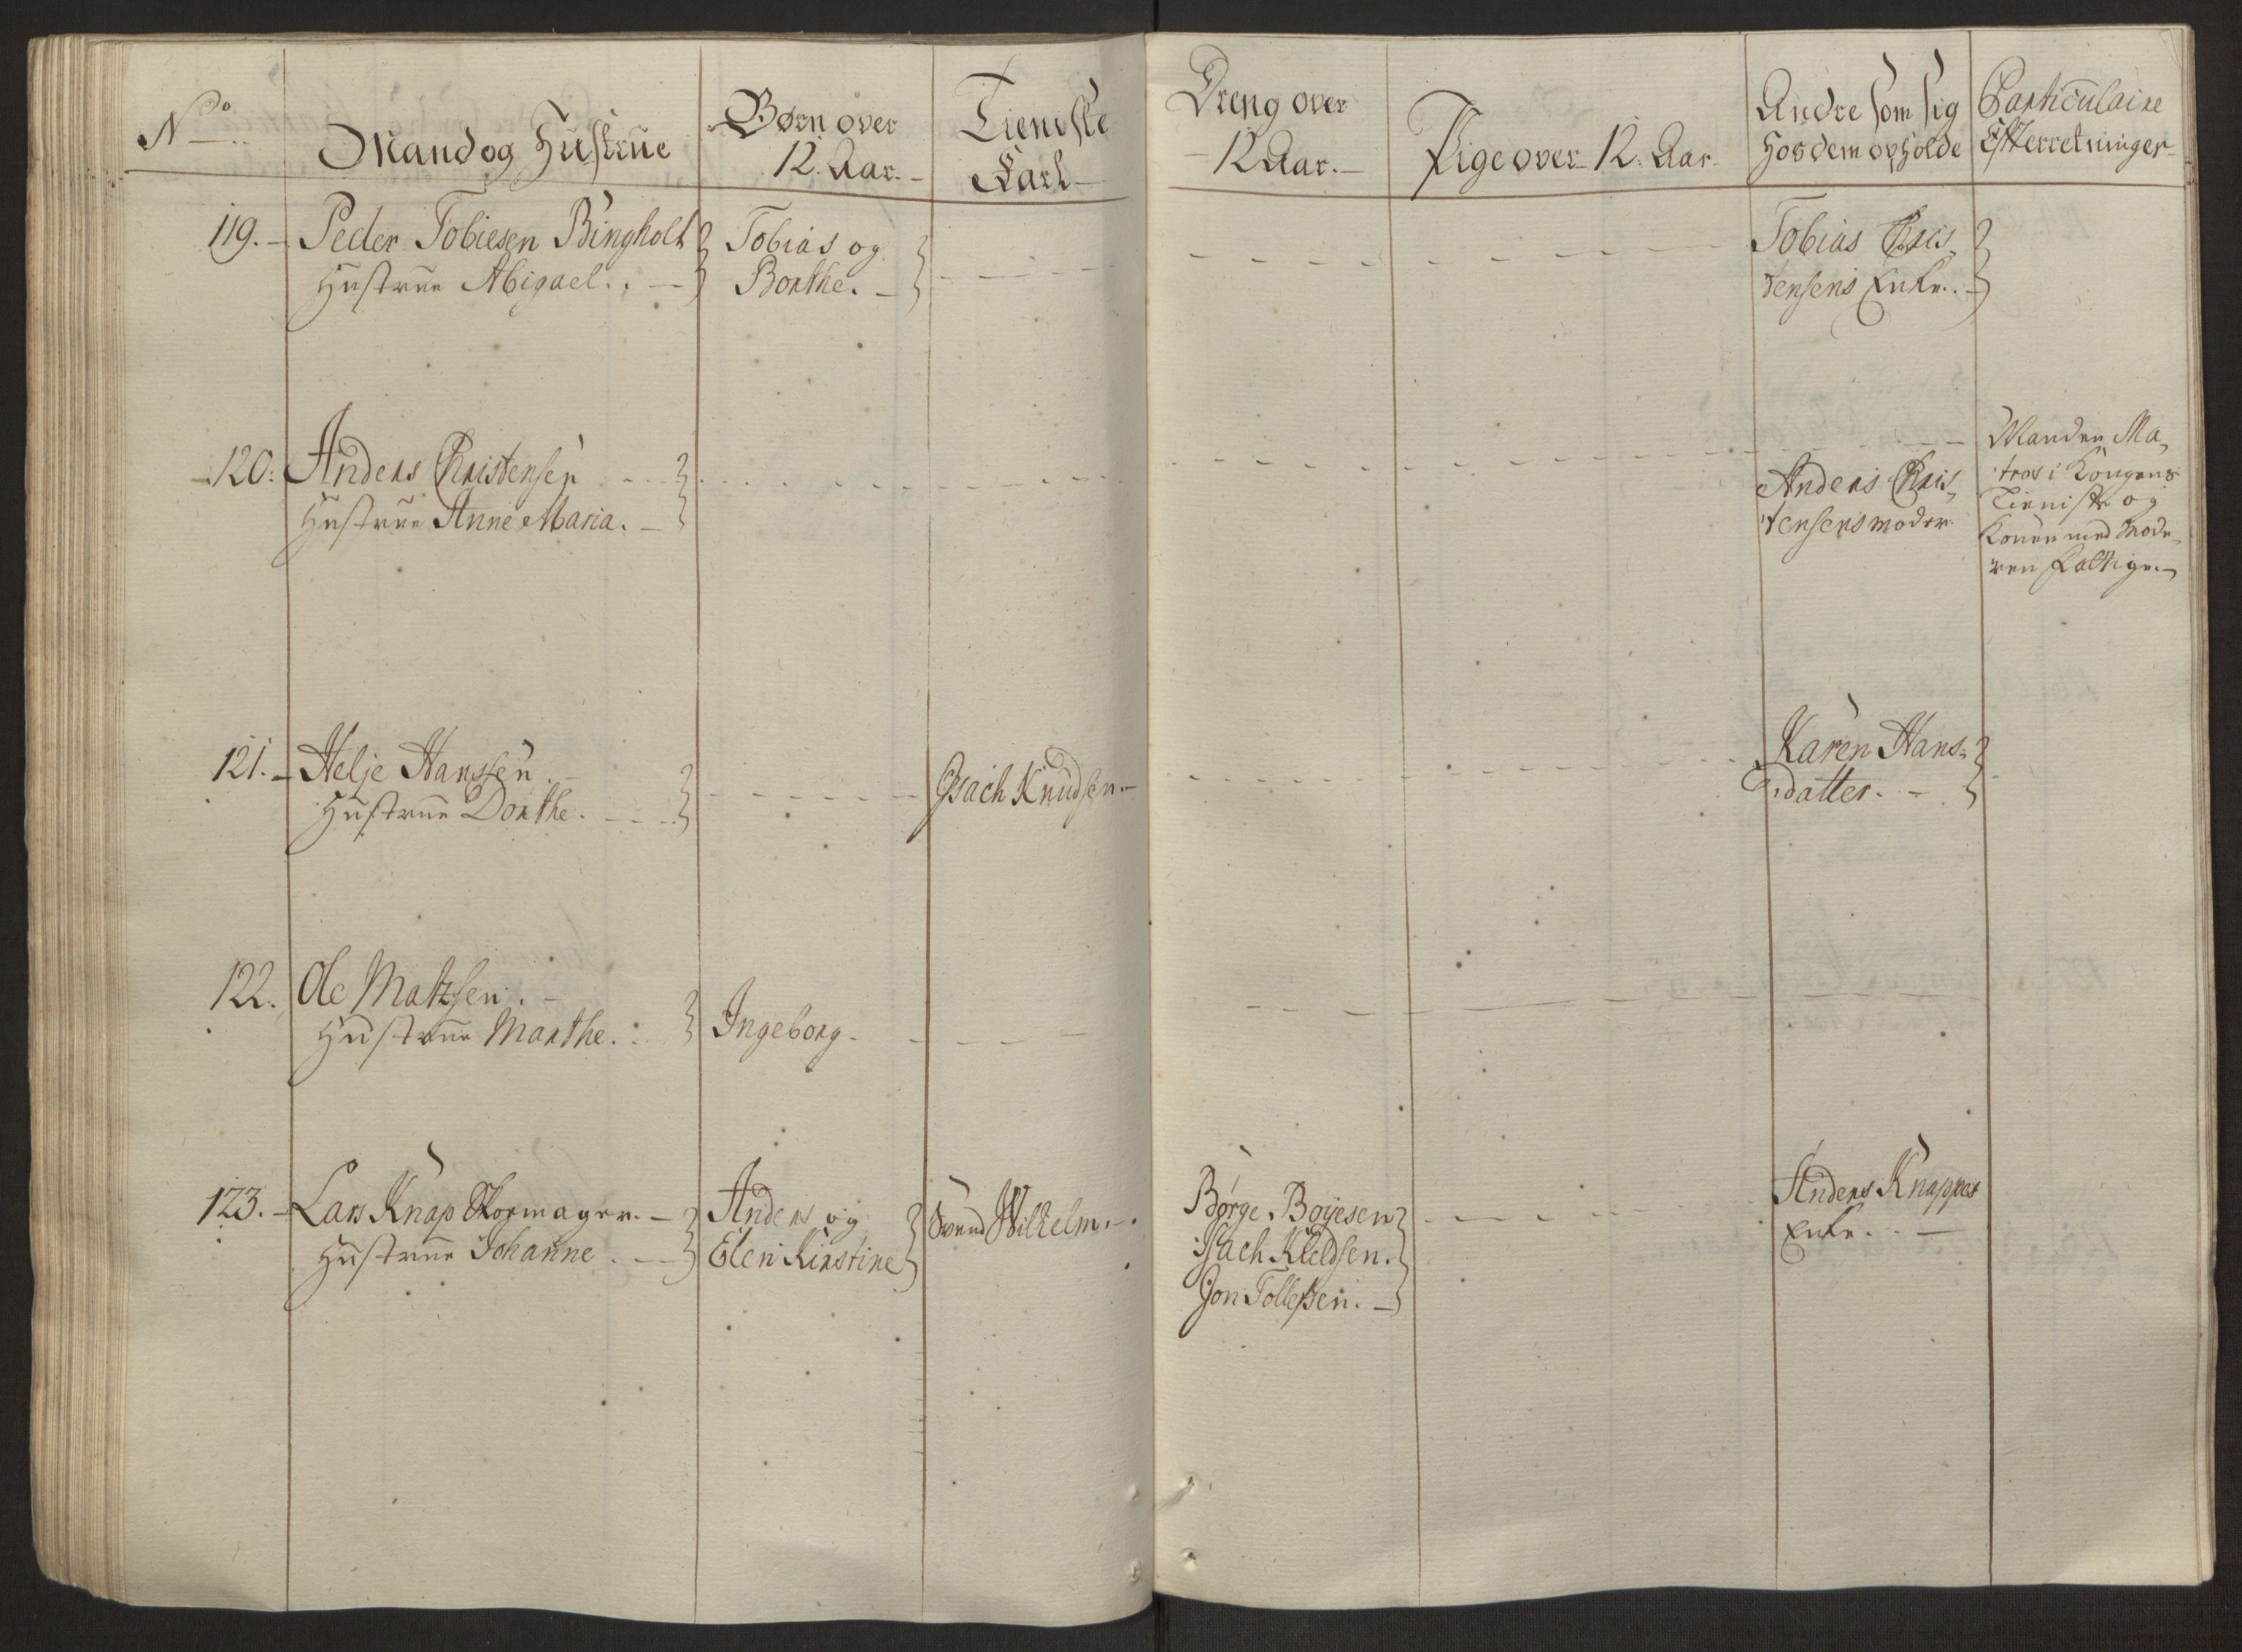 No
Mand og Hustrue
Børn over
12. Aar.
Tieniste
Karl
Dreng over
12 Aar.
Pige over 12. Aar
Andre som sig
hos dem opholde
Particulaire
Efterretninger
119. Peder Tobiesen Bingholt
Hustrue Abigael.
Tobias og
Borthe.
Tobias Chris
tensens Enke.
120. Anders Christensen
Hustrue Anne Maria.
Anders Chris
tensens moder
Manden Ma
tros i Kongens
Tieniste og
Konen med Mode
ren Fattige.
121. Helje Hanssen.
Hustrue Dorthe.
Isach Knudsen.
Karen Hans
datter.
122. Ole Matzsen.
Hustrue Marthe.
Ingeborg
123. Lars Knap Skomager.
Hustrue Johanne.
Anders og
Elen Kirstine
Svend Wilhelm.
Børge Boyesen
Isach Kieldsen.
Jon Tollefsen.
Anders Knappes
Enke.